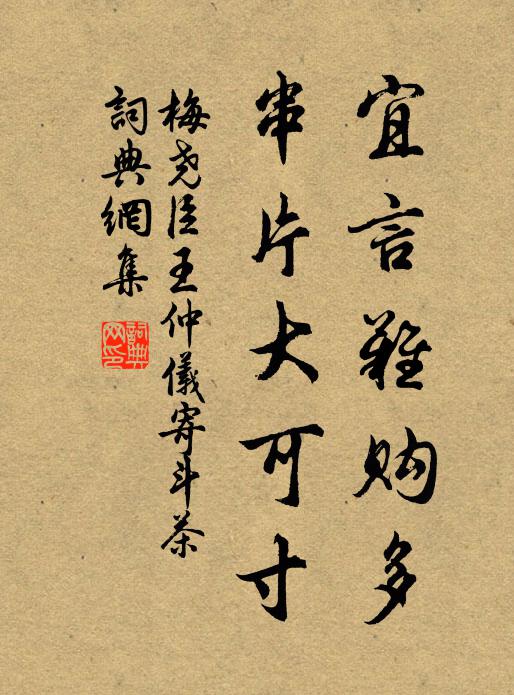 宜言難购多
串片大可寸
梅尧臣王仲儀寄斗茶
詞典網集
詞典网印